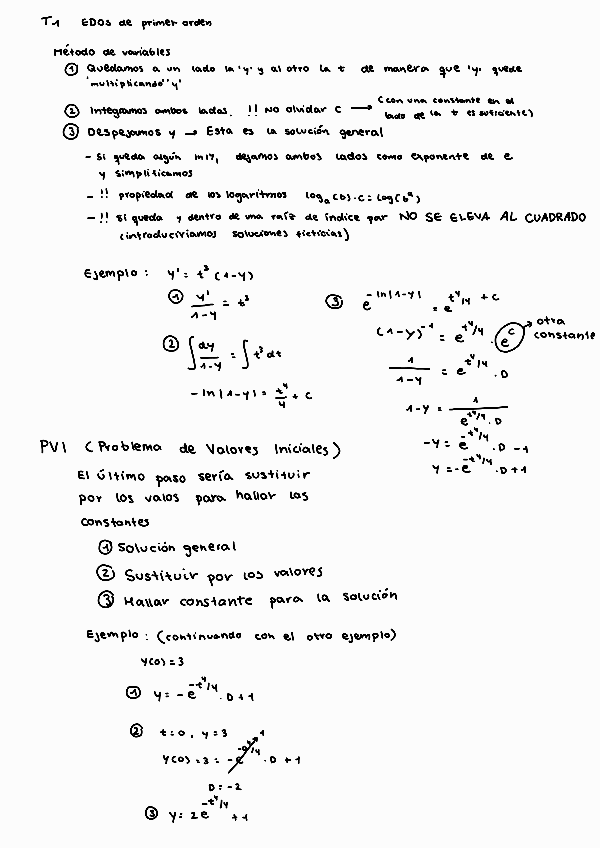 T1 EDOs de primer orden
Método de variables
① Quedamos a un lado la 'y' y al otro la t de manera que 'y' quede
"multiplicando" y'
② Integramos ambos lados. !! No olvidar C → (con una constante en el
lado de la t es suficiente)
③ Despejamos y → Esta es la solución general
- Si queda algún ln|y|, dejamos ambos lados como exponente de e
y simplificamos
- !! propiedad de los logaritmos log_a(b)·c = log(b^a)
- !! Si queda y dentro de una raíz de índice par NO SE ELEVA AL CUADRADO
(introduciríamos soluciones ficticias)
Ejemplo: y' = t³(1-y)
① y'/(1-y) = t³
② ∫ dy/(1-y) = ∫ t³ dt
-ln|1-y| = t⁴/4 + C
③ e^(-ln|1-y|) = e^(t⁴/4 + C)
(1-y)⁻¹ = e^(t⁴/4) · e^C → otra
constante
1/(1-y) = e^(t⁴/4) · D
1-y = 1/(e^(t⁴/4) · D)
-y = e^(-t⁴/4) · D - 1
y = -e^(-t⁴/4) · D + 1
PVI (Problema de Valores Iniciales)
El último paso sería sustituir
por los valos para hallar las
constantes
① Solución general
② Sustituir por los valores
③ Hallar constante para la solución
Ejemplo: (continuando con el otro ejemplo)
y(0) = 3
① y = -e^(-t⁴/4) · D + 1
② t = 0, y = 3
y(0) = 3 = -e^(-0⁴/4) · D + 1
1
D = -2
③ y = 2e^(-t⁴/4) + 1